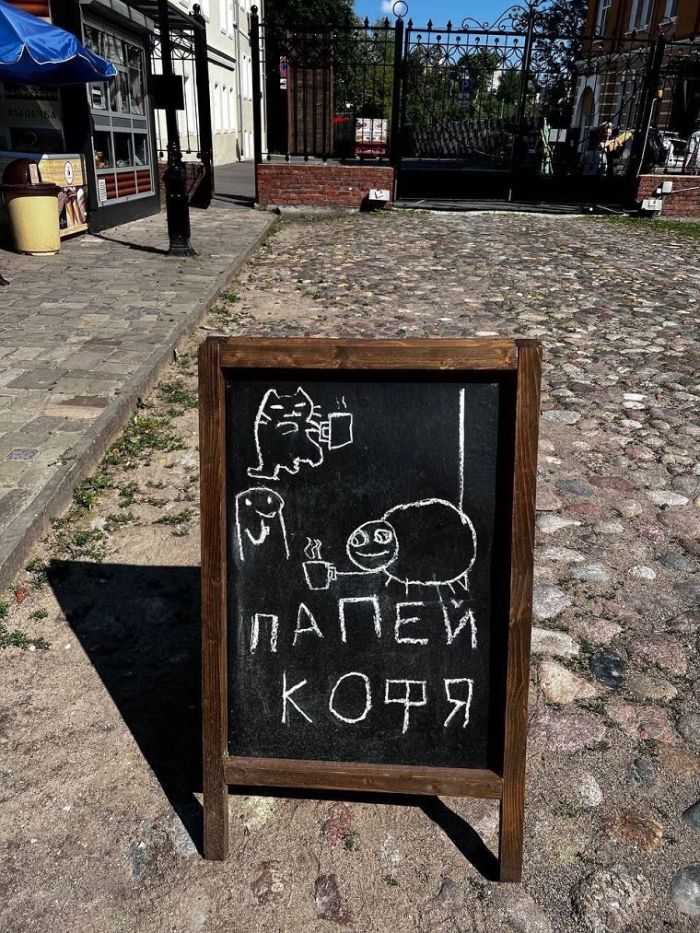 ВЫПЕЧКА
ПАПЕЙ
КОФЯ